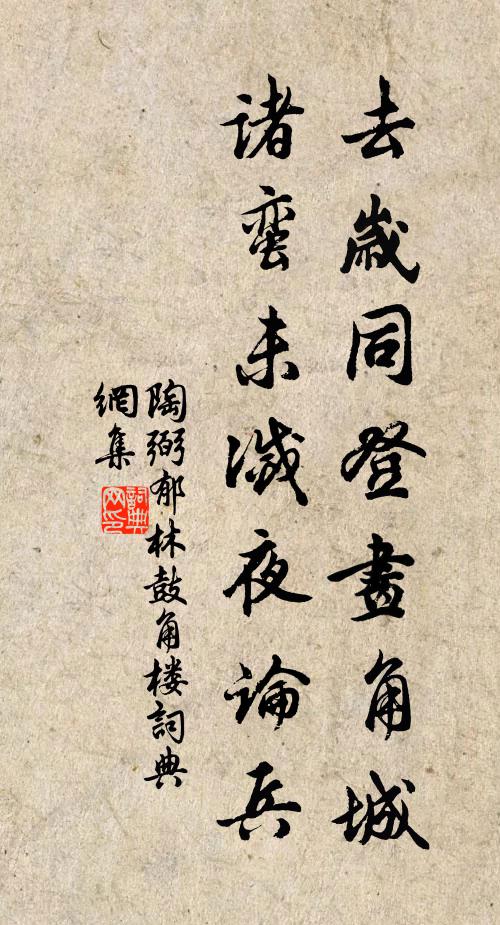 去歲同登畫角城
诸蛮未滅夜論兵
陶弼郁林鼓角楼詞典
網集
詞典网印